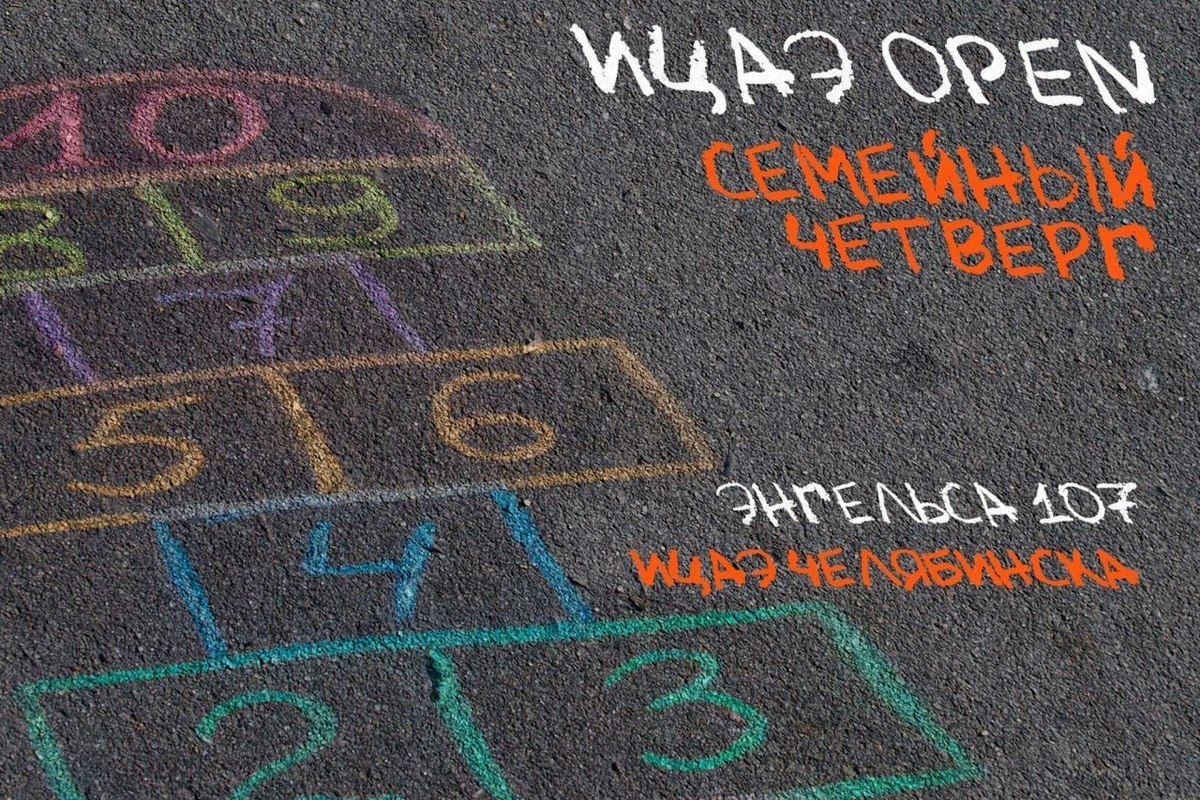 ИЦАЭ OPEN
СЕМЕЙНЫЙ
ЧЕТВЕРГ
10
8 9
7
5 6
ЭНГЕЛЬСА 107
4
ИЦАЭ ЧЕЛЯБИНСКА
2 3